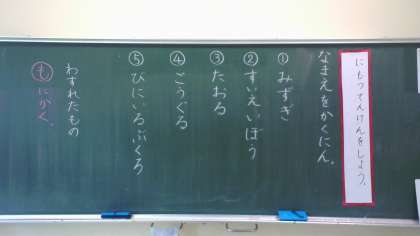 にもつてんけんをしよう。
なまえをかくにん。
①みずぎ
②すいえいぼう
③たおる
④ごうぐる
⑤びにいるぶくろ
わすれたもの
もにかく。